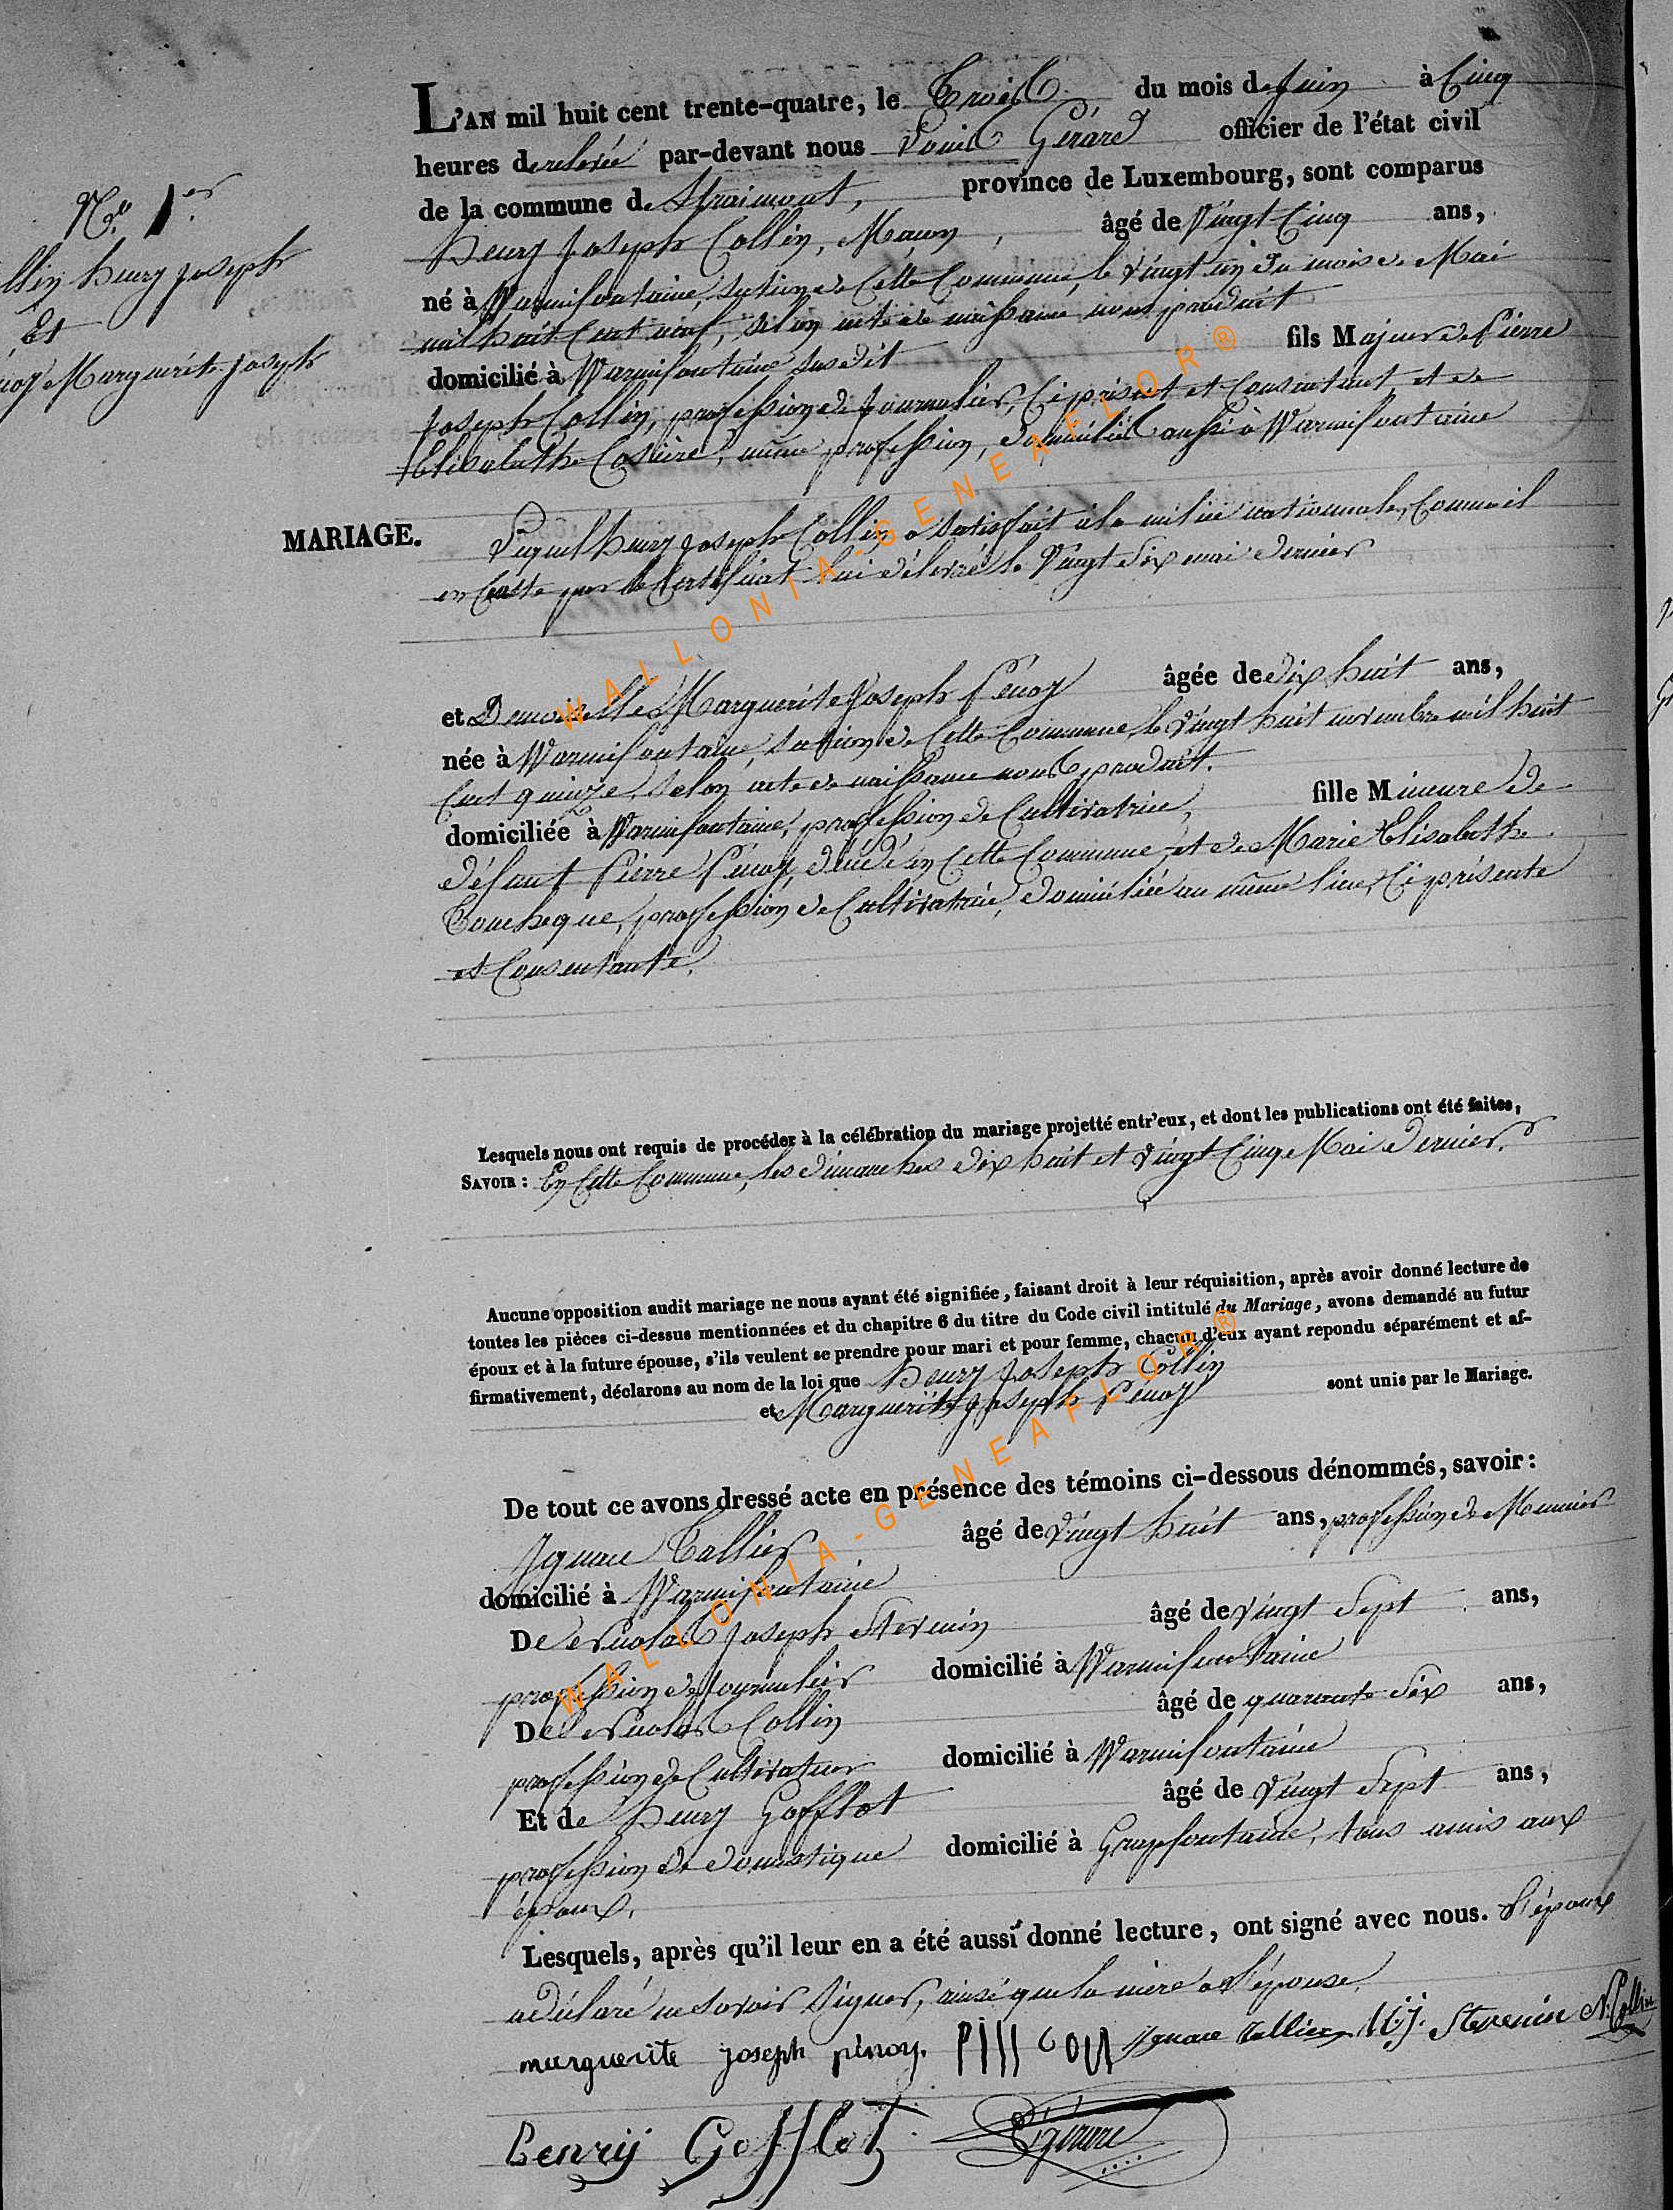 L'AN mil huit cent trente-quatre, le Trois du mois de Juin à Cinq
heures de relevée par-devant nous Louis Gérard officier de l'état civil
de la commune de Straimont, province de Luxembourg, sont comparus
N.o 1.er
Henry Joseph Collin, Maçon, âgé de Vingt Cinq ans,
llin henry joseph
né à Warmifontaine, section de Cette Commune, le Vingt un du mois de Mai
Et
mil huit Cent neuf, selon acte de naissance nous produit
noy Marguerite joseph
domicilié à Warmifontaine susdit fils Majeur de Pierre
Joseph Collin, profession de Journalier, Ci présent et Consentant, et de
Elisabethe, même profession, domiciliés aussi à Warmifontaine
MARIAGE.
Lequel henry joseph Collin a satisfait à la milice nationale, Comme il
en Conste par le Certificat lui délivré le Vingt Six mai dernier
et Demoiselle Marguerite Joseph Penoy âgée de dix huit ans,
née à Warmifontaine, section de Cette Commune, le Vingt huit novembre mil huit
Cent quinze, selon acte de naissance nous produit.
domiciliée à Warmifontaine, profession de Cultivatrice, fille Mineure de
défunt Pierre Penoy, décédé en Cette Commune, et de Marie Elisabethe
profession de Cultivatrice, domiciliée au même lieu, Ci présente
et Consentante.
Lesquels nous ont requis de procéder à la célébration du mariage projetté entr'eux, et dont les publications ont été faites,
SAVOIR : En Cette Commune, les dimanches dix huit et Vingt Cinq Mai dernier.
Aucune opposition audit mariage ne nous ayant été signifiée, faisant droit à leur réquisition, après avoir donné lecture de
toutes les pièces ci-dessus mentionnées et du chapitre 6 du titre du Code civil intitulé du Mariage, avons demandé au futur
époux et à la future épouse, s'ils veulent se prendre pour mari et pour femme, chacun d'eux ayant repondu séparément et af-
firmativement, déclarons au nom de la loi que Henry Joseph Collin
et Marguerite Joseph Penoy sont unis par le Mariage.
De tout ce avons dressé acte en présence des témoins ci-dessous dénommés, savoir :
Ignace Tallier âgé de Vingt huit ans, profession de Meunier
domicilié à Warmifontaine
De Nicolas Joseph Stevenin âgé de Vingt Sept ans,
profession de Journalier domicilié à Warmifontaine
De Nicolas Collin âgé de quarante Six ans,
profession de Cultivateur domicilié à Warmifontaine
Et de Henry Gofflot âgé de Vingt Sept ans,
profession de domestique domicilié à Grapfontaine, tous amis aux
époux.
Lesquels, après qu'il leur en a été aussi donné lecture, ont signé avec nous. L'époux
a déclaré ne savoir Signer, ainsi que la mère de l'épouse.
marguerite joseph pénoy. Ignace Tallier N.J. Stevenin N. Collin
henrij Gofflot L. Gérard
WALLONIA-GENEAFLOR®
WALLONIA-GENEAFLOR®